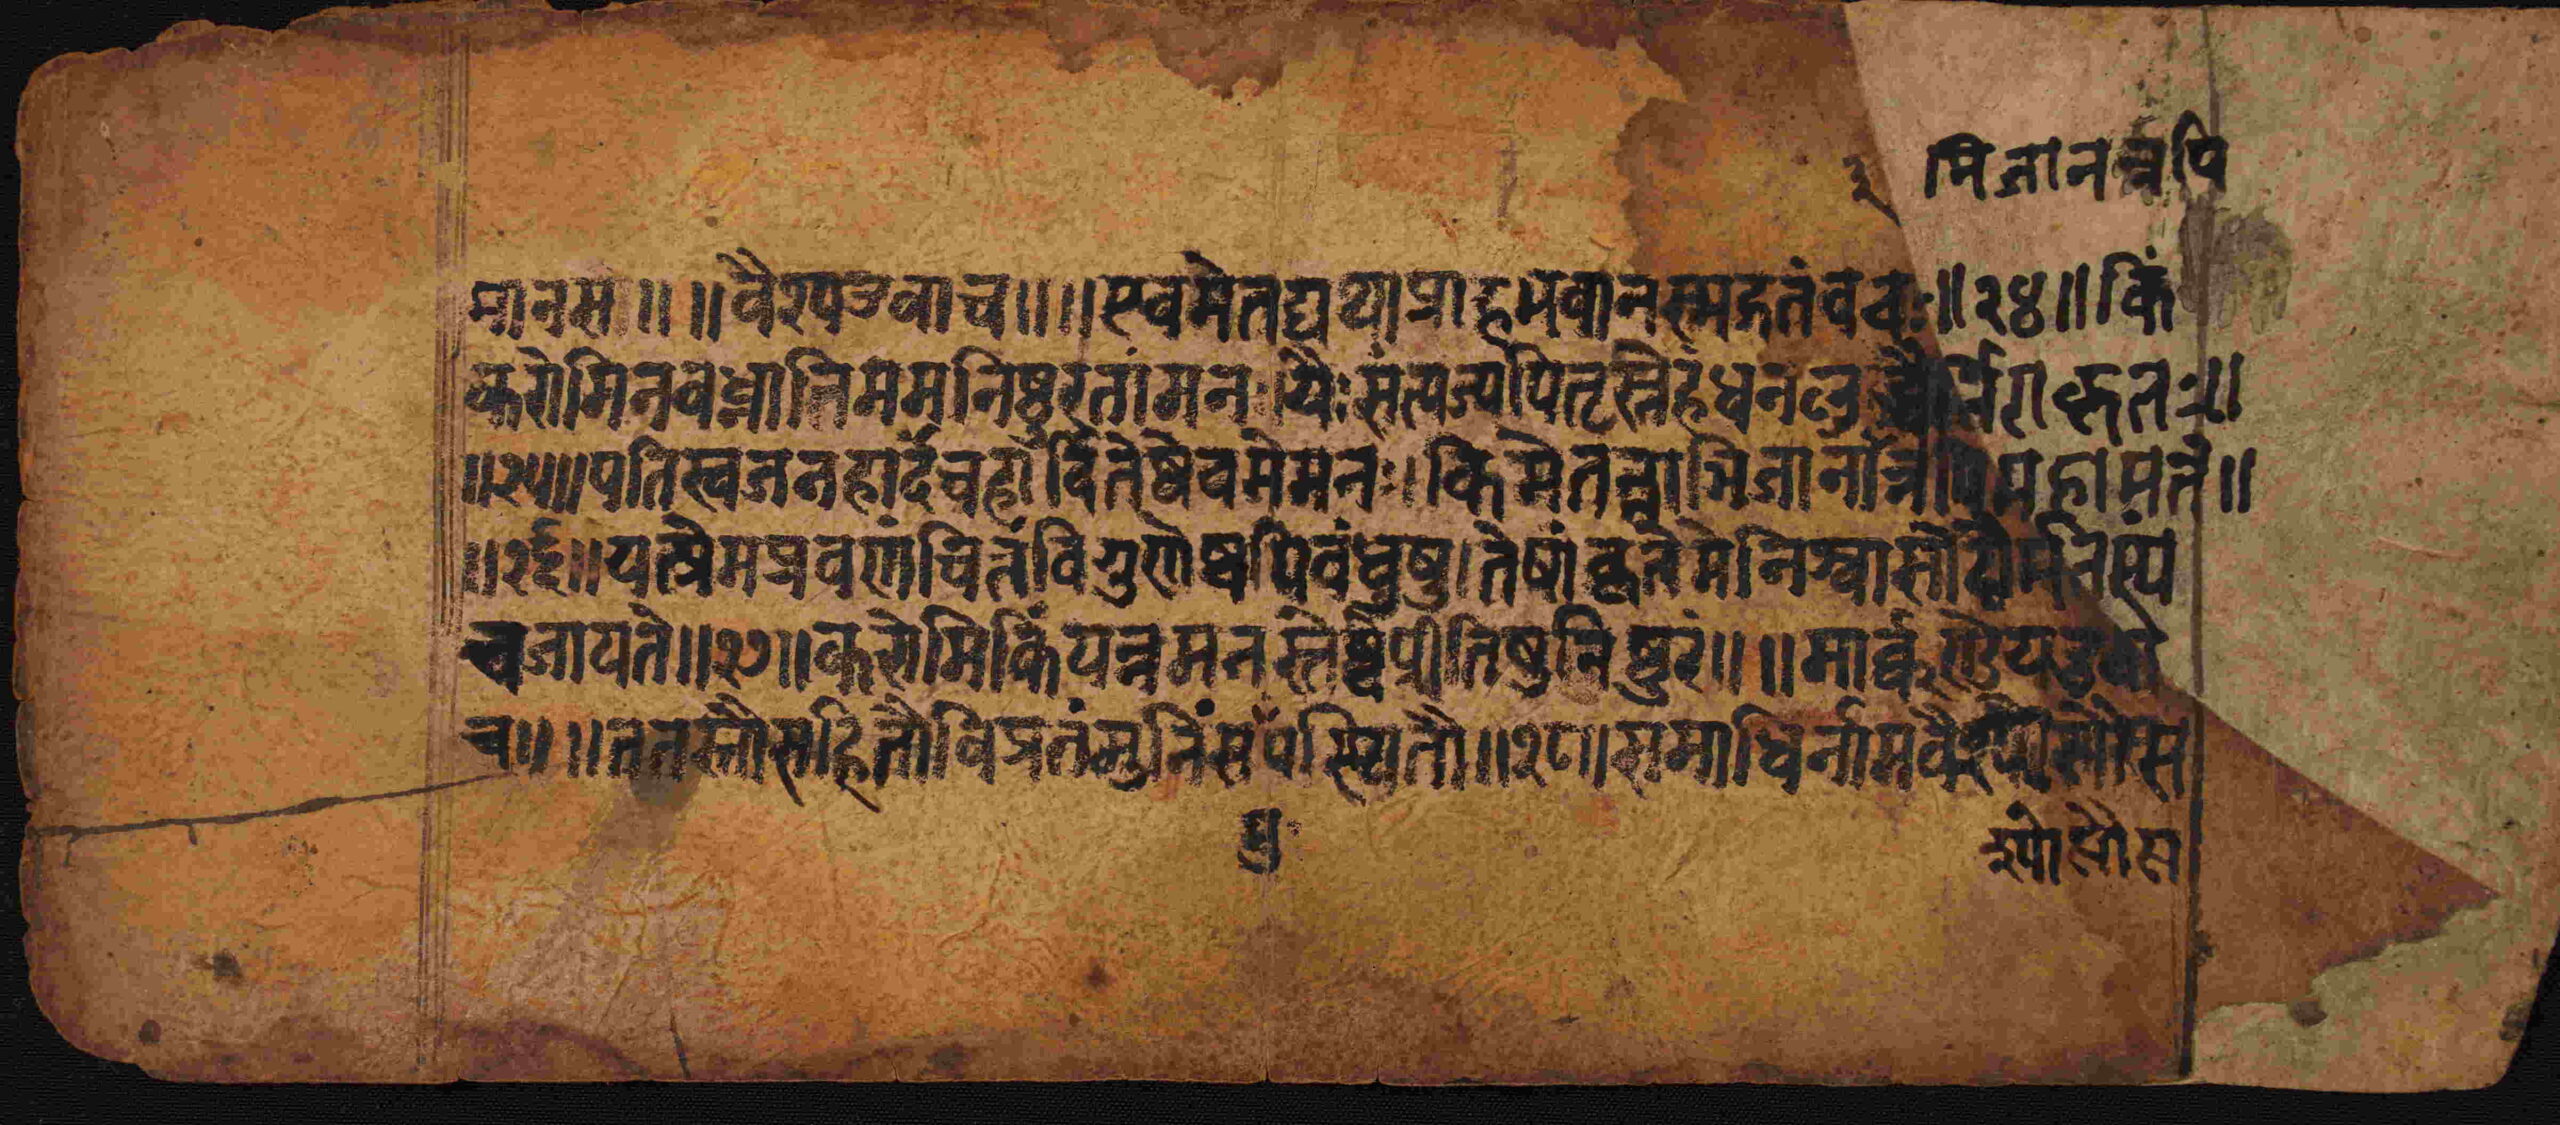 ३ भिजानन्नपि
मानसं॥ ॥वैश्यउवाच॥ ॥एवमेतद्यथाप्राहभवानस्मद्गतंवचः॥२४॥किं
करोमिनवध्नातिममनिष्ठुरतांमनः।यैःसंत्यज्यपितृस्नेहंधनलुब्धैर्निराकृतः॥
॥२५॥पतिस्वजनहार्दंचहार्दितेष्वेवमेमनः।किमेतन्नाभिजानान्नपिमहामते॥
॥२६॥यत्प्रेमप्रवणंचित्तंविगुणेष्वपिबंधुषु।तेषांकृतेमेनिश्वासोदौर्मनस्यं
चजायते॥२७॥करोमिकिंयन्नमनस्तेष्वप्रीतिषुनिष्ठुरं॥ ॥मार्कण्डेयउवा
च॥ ॥ततस्तौसहितौविप्रतंमुनिंसंपस्थितौ॥२८॥समाधिर्नामवैश्योसौस
श्योसौस